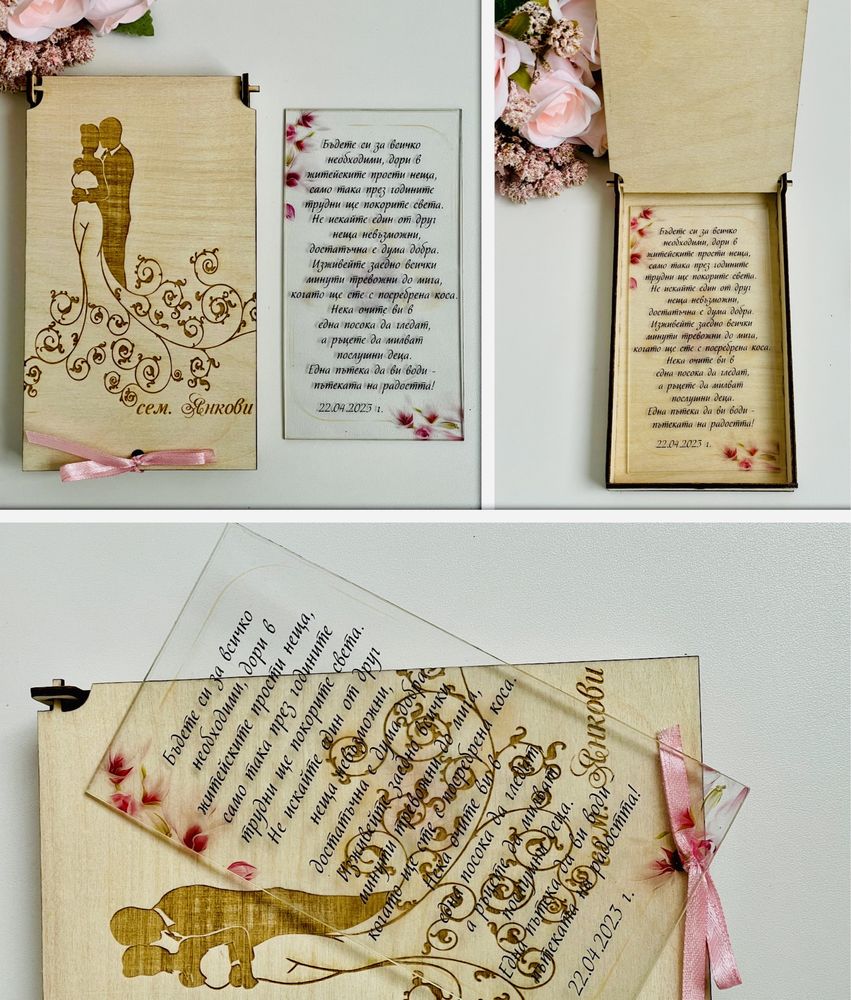 сем. Янкови
Бъдете си за всичко
необходими, дори в
житейските прости неща,
само така през годините
трудни ще покорите света.
Не искайте един от друг
неща невъзможни,
достатъчна е дума добра.
Изживейте заедно всички
минути тревожни до мига,
когато ще сте с посребрена коса.
Нека очите ви в
една посока да гледат,
а ръцете да милват
послушни деца.
Една пътека да ви води -
пътеката на радостта!
22.04.2023 г.
Бъдете си за всичко
необходими, дори в
житейските прости неща,
само така през годините
трудни ще покорите света.
Не искайте един от друг
неща невъзможни,
достатъчна е дума добра.
Изживейте заедно всички
минути тревожни до мига,
когато ще сте с посребрена коса.
Нека очите ви в
една посока да гледат,
а ръцете да милват
послушни деца.
Една пътека да ви води -
пътеката на радостта!
22.04.2023 г.
Бъдете си за всичко
необходими, дори в
житейските прости неща,
само така през годините
трудни ще покорите света.
Не искайте един от друг
неща невъзможни,
достатъчна е дума добра.
Изживейте заедно всички
минути тревожни до мига,
когато ще сте с посребрена коса.
Нека очите ви в
една посока да гледат,
а ръцете да милват
послушни деца.
Една пътека да ви води -
пътеката на радостта!
22.04.2023 г.
сем. Янкови